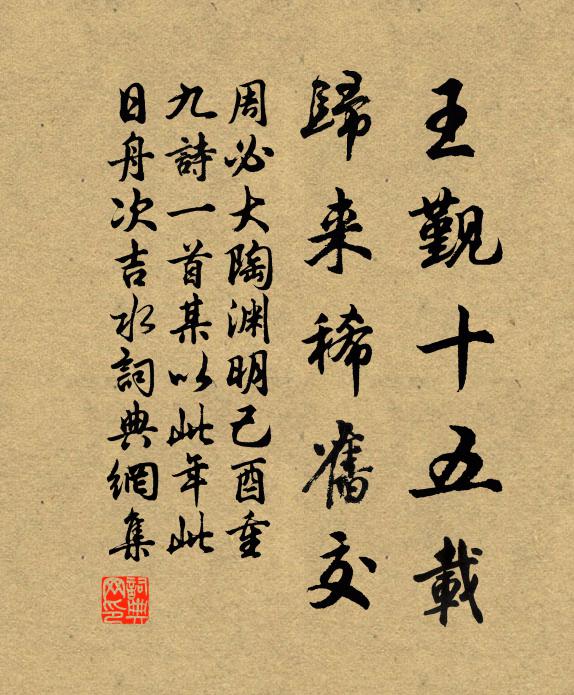 王觐十五載
歸来稀舊交
周必大陶渊明己酉重
九詩一首某以此年此
日舟次吉水詞典網集
詞典
网印